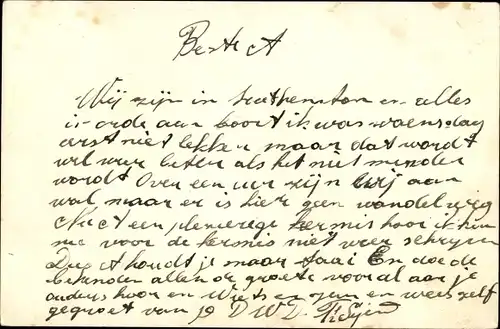 Beste A
Wij zijn in Southampton en alles
is orde aan boort ik was woensdag
eerst niet lekker maar dat wordt
wel weer beter als het niet minder
wordt Over een uur zijn wij aan
wal maar er is hier geen wandel weg
A een plezierige kermis hoor ik kan
me voor de kermis niet weer schrijven
Dus A houdt je maar taai En doe de
bekenden allen de groete vooral aan je
ouders hoor en en wees zelf
gegroet van je D.W.D.